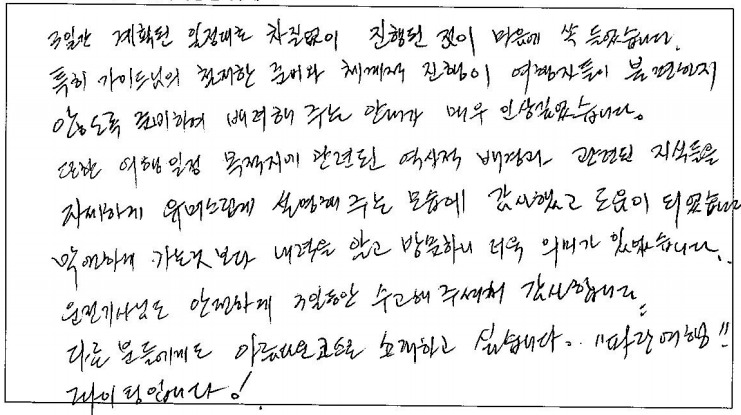 3일간 계획된 일정대로 차질없이 진행된 점이 마음에 쏙 들었습니다.
특히 가이드님의 철저한 준비와 체계적 진행이 여행자들이 불편하지
않도록 준비하며 배려해 주는 안내가 매우 인상깊었습니다.
또한 여행 일정 목적지에 관련된 역사적 배경과 관련된 지식들을
자세하게 유머스럽게 설명해 주는 모습에 감사했고 도움이 되었습니다
막연하게 가는것 보다 내력을 알고 방문하니 더욱 의미가 있었습니다.
운전기사님도 안전하게 3일동안 수고해 주셔서 감사합니다
다른 분들에게도 아름다운 코스로 소개하고 싶습니다. "파란여행"
화이팅입니다!